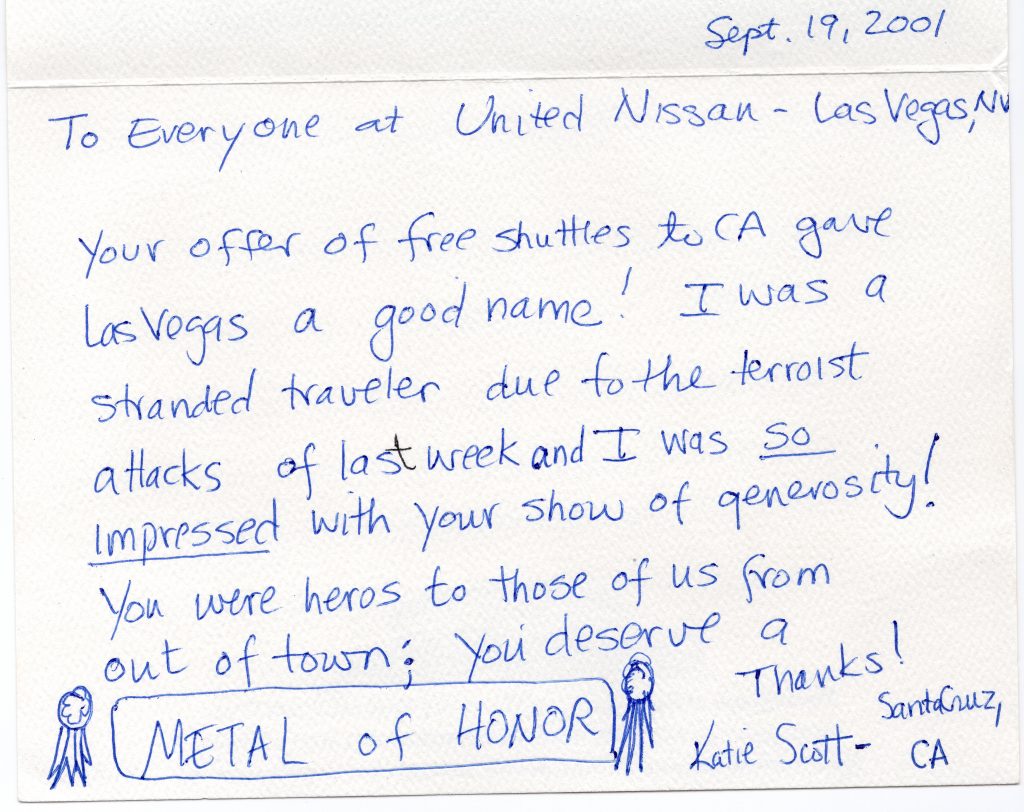 Sept. 19, 2001
To Everyone at United Nissan - Las Vegas, NV
Your offer of free shuttles to CA gave
Las Vegas a good name! I was a
stranded traveler due to the terroist
attacks of last week and I was so
impressed with your show of generosity!
You were heros to those of us from
out of town; you deserve a
METAL of HONOR
Thanks!
Katie Scott - Santa Cruz,
CA